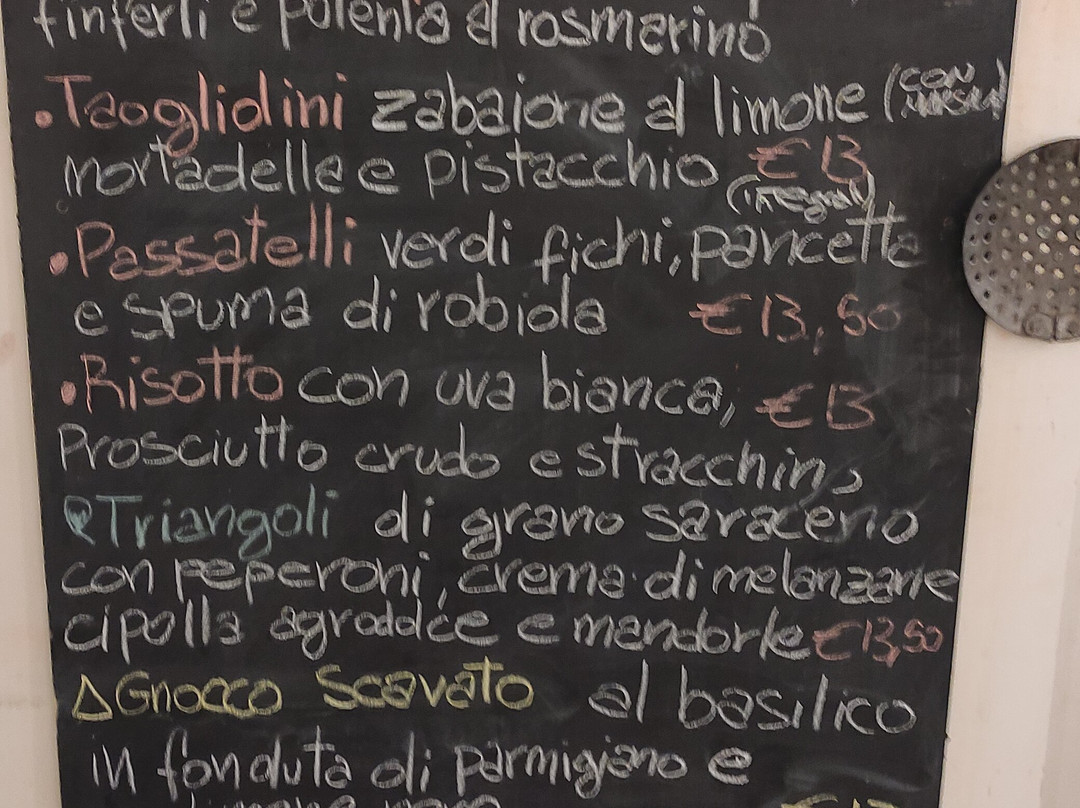 finferli e polenta al rosmarino
• Taogliolini zabaione al limone (CON
mortadella e pistacchio € 13
(integrali)
• Passatelli verdi fichi, pancetta
e spuma di robiola € 13,50
• Risotto con uva bianca, € 13
Prosciutto crudo e stracchino
Triangoli di grano saraceno
con peperoni, crema di melanzane
cipolla agrodolce e mandorle € 13,50
Δ Gnocco Scavato al basilico
in fonduta di parmigiano e